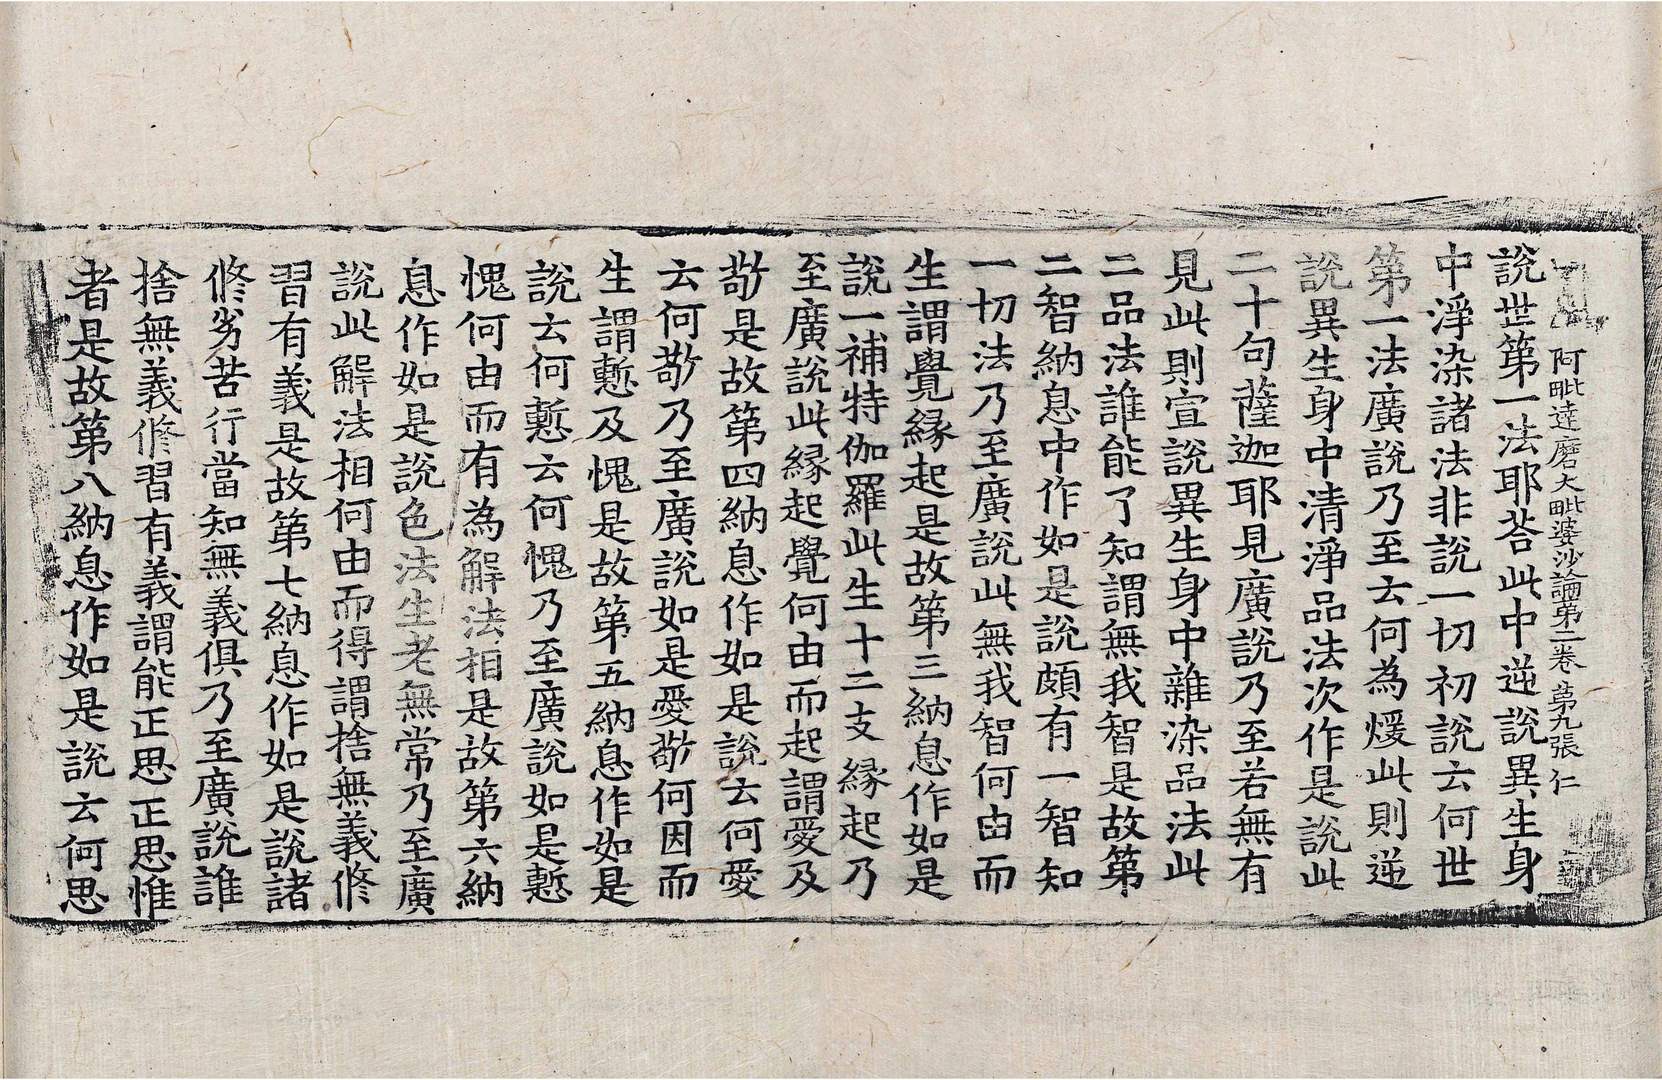 阿毗達磨大毗婆沙論第二卷　第九張　仁
說世第一法耶荅此中逆說異生身
中淨染諸法非說一切初說云何世
第一法廣說乃至云何為煖此則逆
說異生身中清淨品法次作是說此
二十句薩迦耶見廣說乃至若無有
見此則宣說異生身中雜染品法此
二品法誰能了知謂無我智是故第
二智納息中作如是說頗有一智知
一切法乃至廣說此無我智何由而
生謂覺縁起是故第三納息作如是
說一補特伽羅此生十二支縁起乃
至廣說此縁起覺何由而起謂愛及
敬是故第四納息作如是說云何愛
云何敬乃至廣說如是愛敬何因而
生謂慙及愧是故第五納息作如是
說云何慙云何愧乃至廣說如是慙
愧何由而有為解法相是故第六納
息作如是說色法生老無常乃至廣
說此解法相何由而得謂捨無義修
習有義是故第七納息作如是說諸
修劣苦行當知無義俱乃至廣說誰
捨無義修習有義謂能正思正思惟
者是故第八納息作如是說云何思